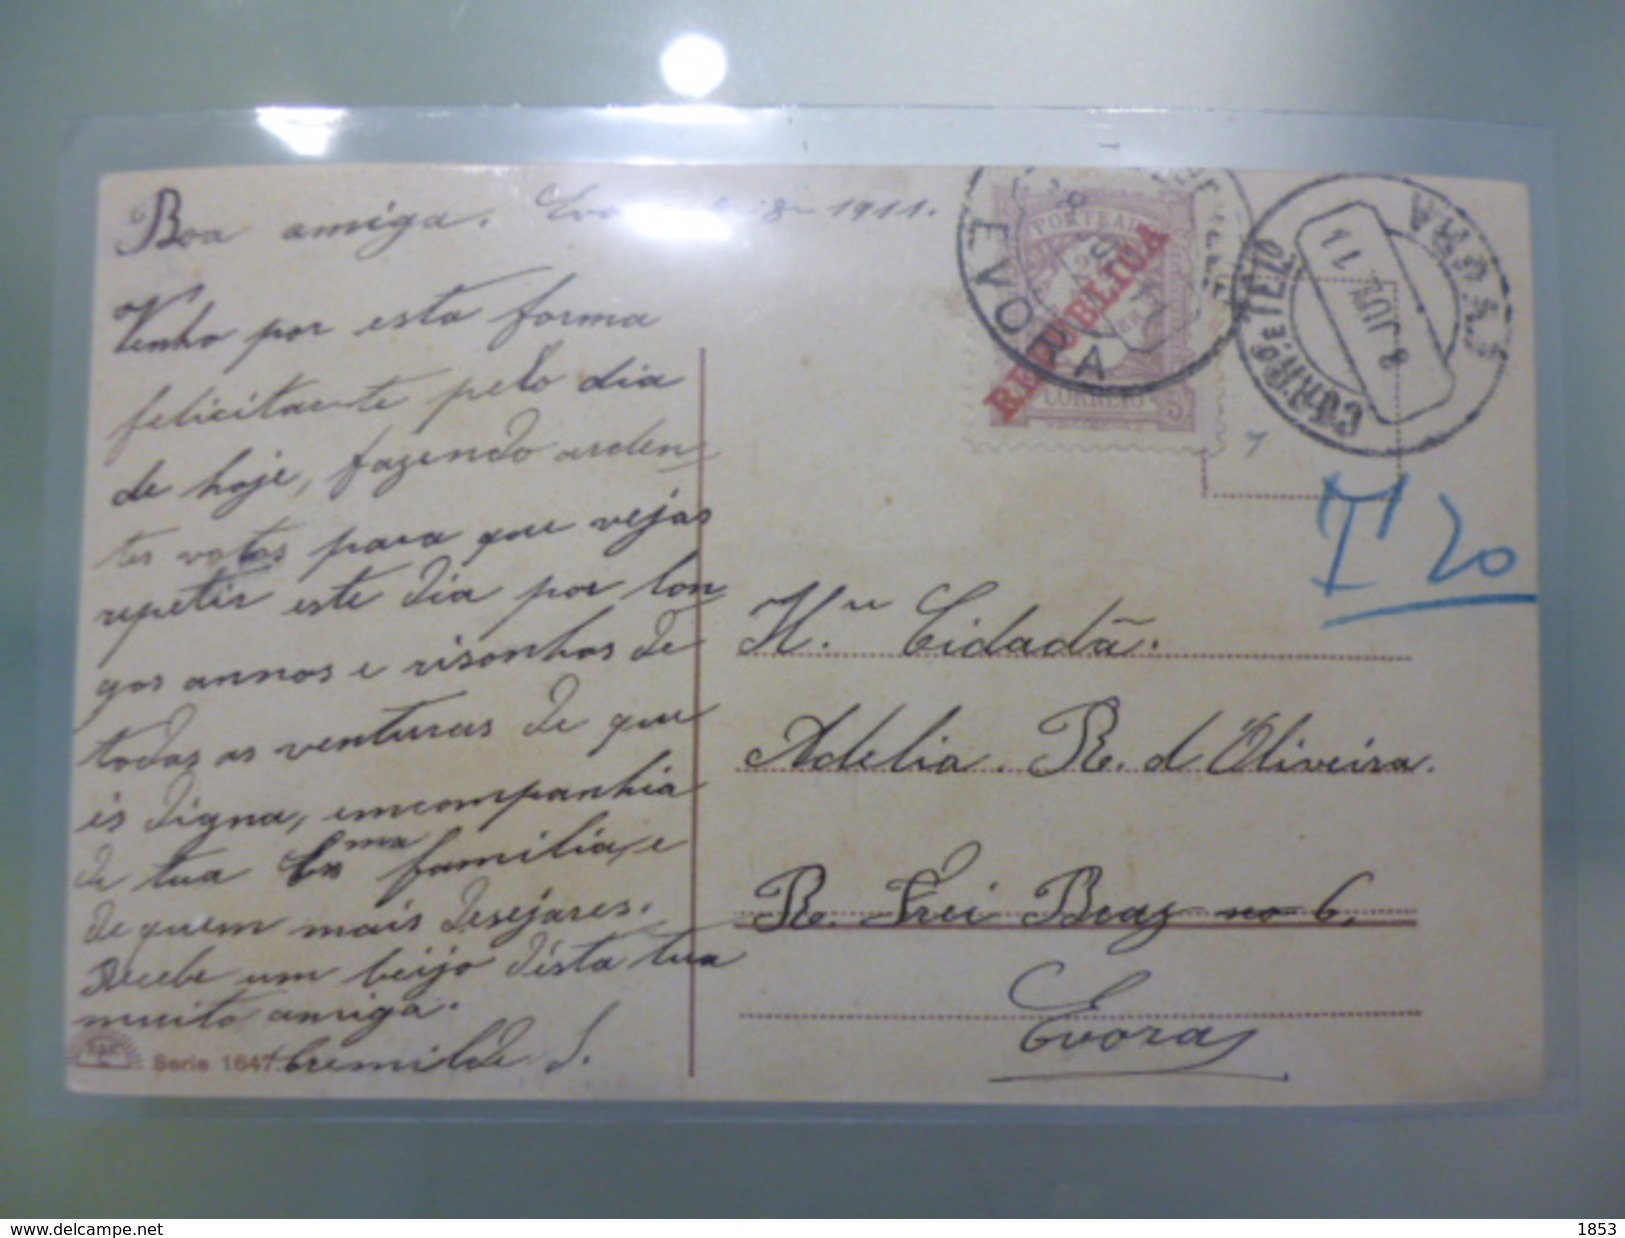 Boa amiga. 8- 1911.
Venho por esta forma
felicitar-te pelo dia
de hoje, fazendo arden-
tes votos para que vejas
repetir este dia por lon
gos annos e risonhos de
todas as venturas de que
és digna, emcompanhia
de tua Exma familia, e
de quem mais desejares.
Recebe um beijo d'esta tua
muito amiga.
Serie 1647
PORTEAR
REPUBLICA
CORREIO 5
EVORA
CORR. E TELEG
EVORA
8 JUL 11
T 20
Cidadã.
Adelia. R. d'Oliveira.
R. Frei Braz no 6,
Evora
delcampe.net
1853